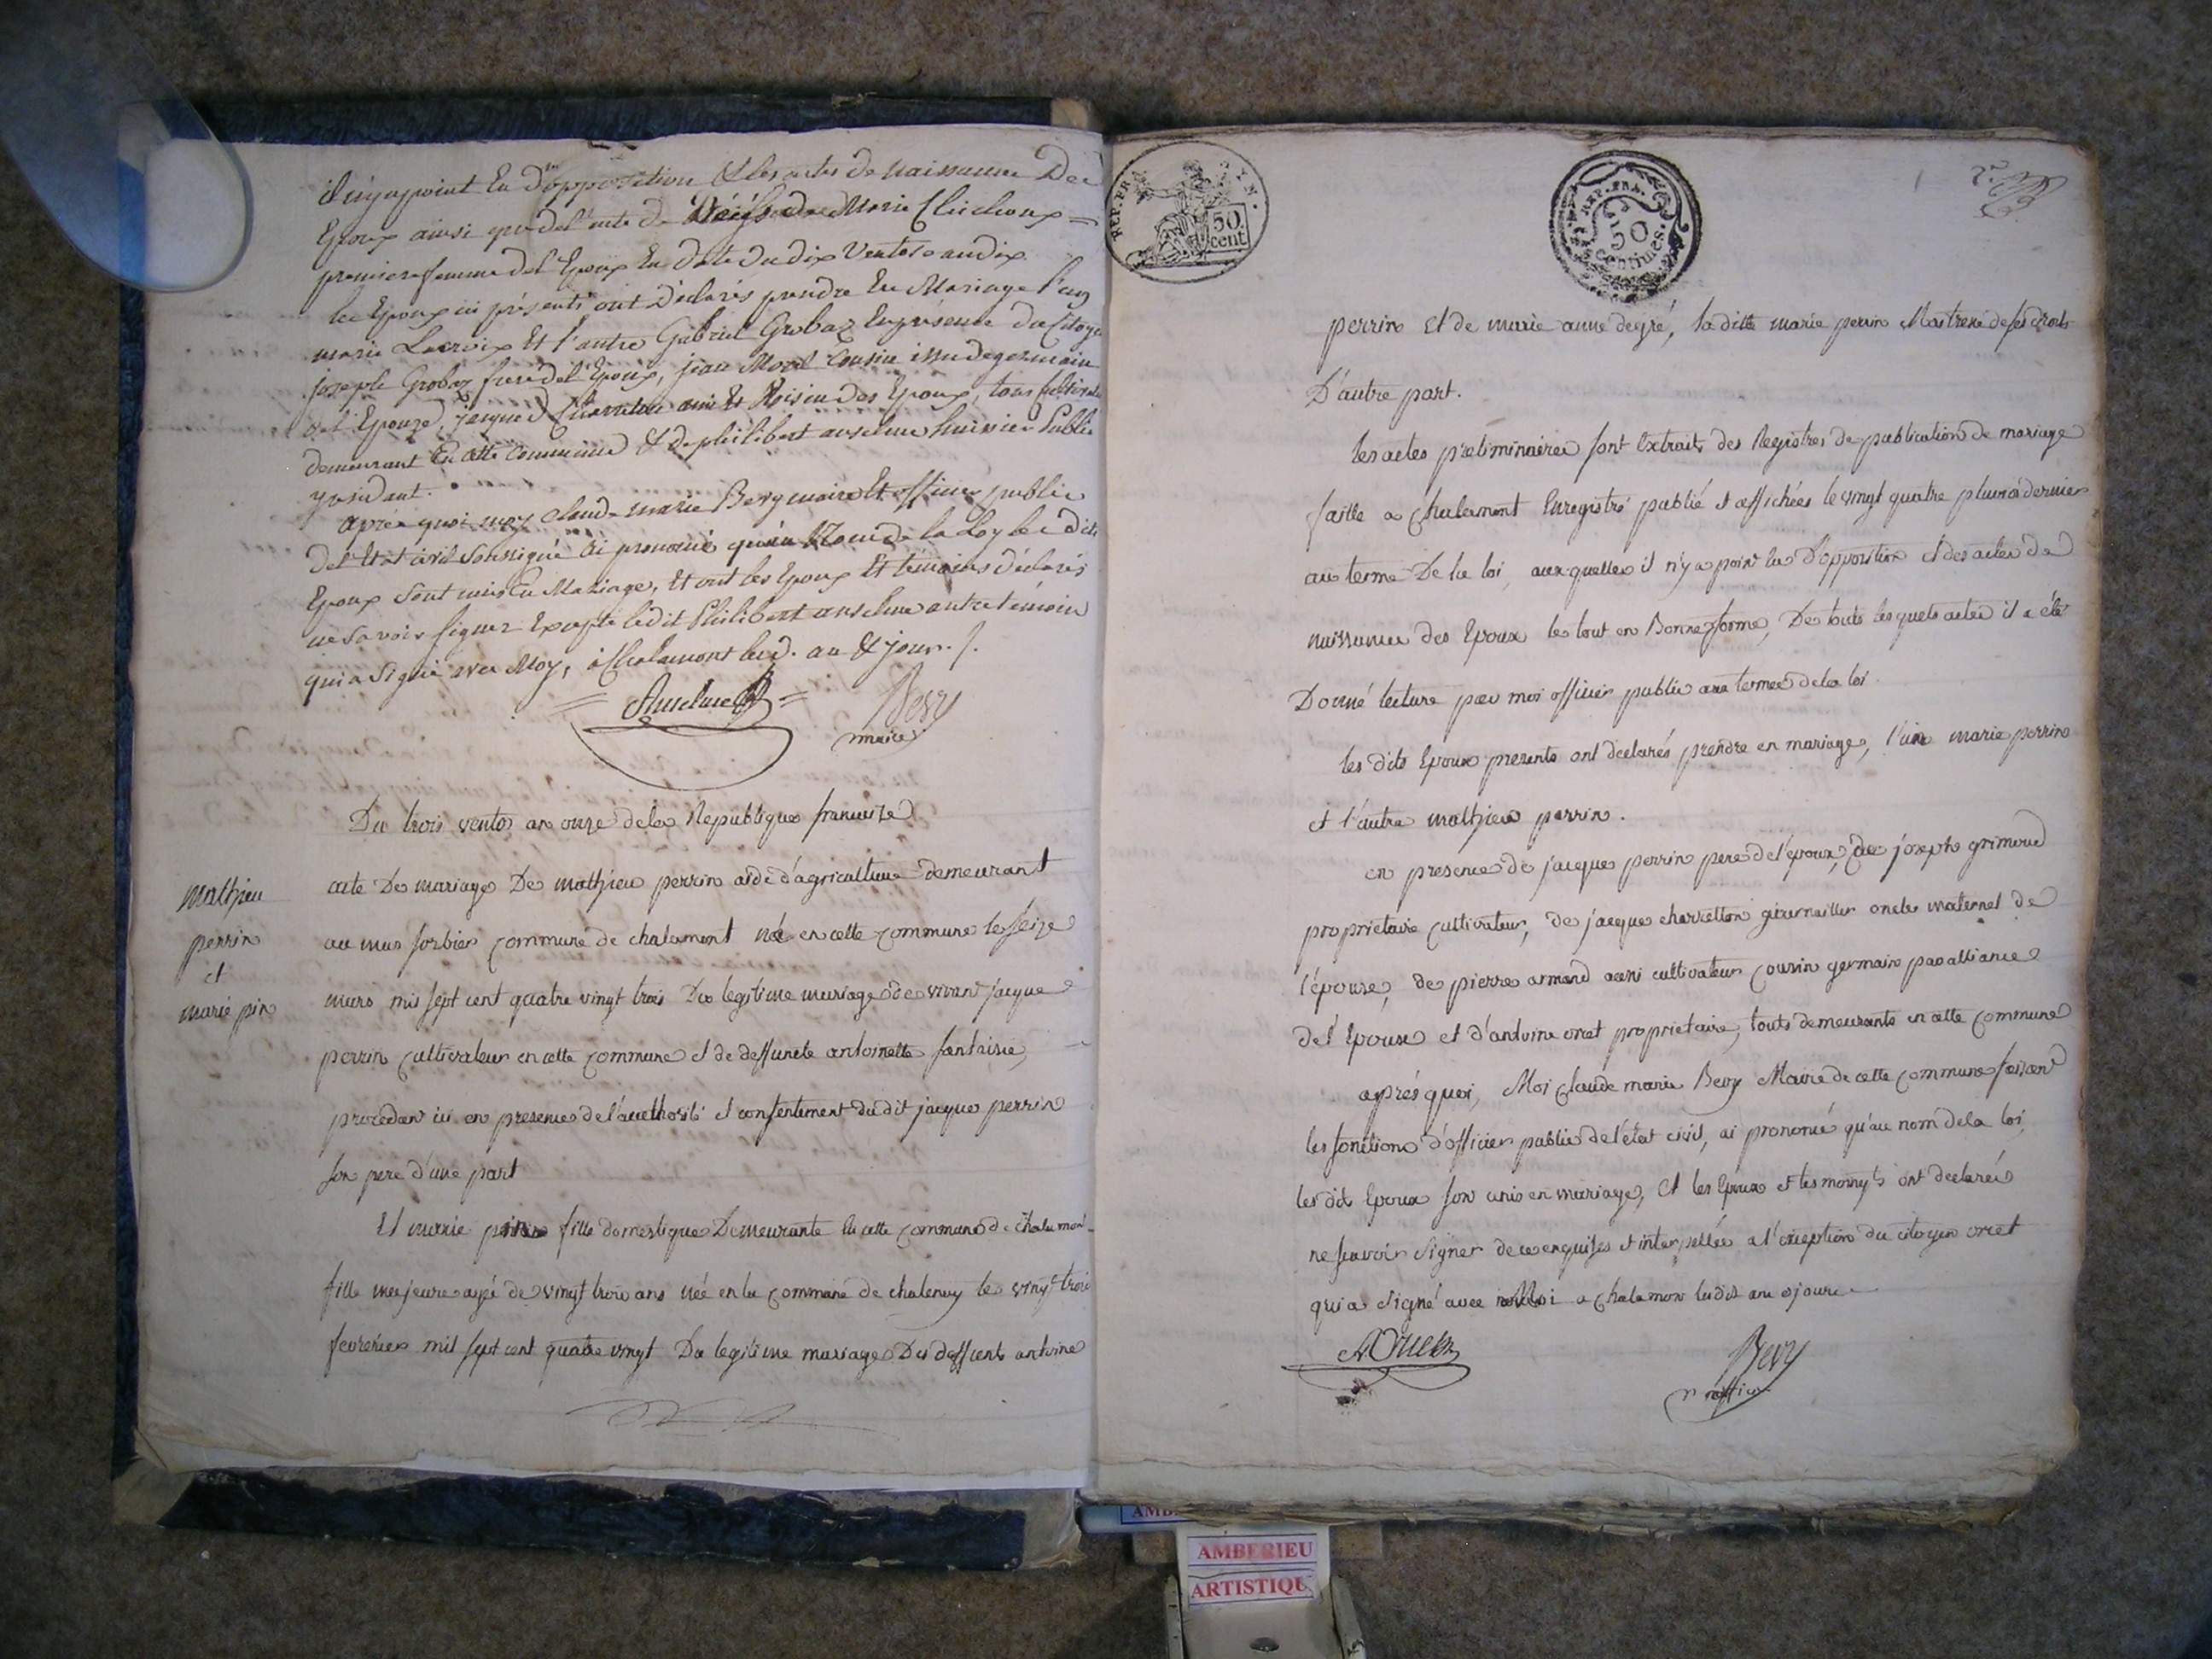 il n'y a point Eu d'opposition & les actes de Naissance Des
Epoux ainsi que de l'acte de Décès de Marie Cluchoux =
premiere femme del Epoux En date du dix Ventose an dix
les Epoux ici présents ont Déclarés prendre En Mariage l'un
marie Lacroix Et l'autre Gabriel Grobaz En présence du Citoyen
joseph Grobaz frere del Epoux, jean Morel Cousin issu de germain
del Epouze, jacque Charreton ami Et Voisin des Epoux, tous
demeurant En cette Commune & de philibert anselme huissier Public
y residant.
après quoi moy claude marie Bevy maire Et officier public
del Etat civil Soussigné ai prononcé qu'au Nom de la Loy les dits
Epoux Sont unis En Mariage, Et ont les Epoux Et témoins déclarés
ne Savoir Signer Excepté ledit Philibert anselme autre témoin
qui a Signé avec Moy, à Chalamont led. an & jour ./.
= Anselme =
Bevy
maire
Du trois ventos an onze dela Republique francaise
mathieu
perrin
et
marie pin
acte De mariage De mathieu perrin aide d'agriculture demeurant
au mas sorbier commune de chalamont né en cette commune le seize
mars mis sept cent quatre vingt trois Du legitime mariage de vivant jacque
perrin cultivateur en cette commune et de deffuncte antoinette fantaisie,
procedant ici en presence de l'aucthorité et consentement du dit jacque perrin
son pere d'une part
Et marie fille domestique Demeurante En cette commune de chalamont
fille majeure agé de vingt trois ans née en la commune de chatenay le vingt trois
fevrerier mil sept cent quatre vingt Du legitime mariage Des deffients antoine
REP. FRA.
50
cent
REP. FRA.
50
centimes.
perrin Et de marie anne degré, la ditte marie perrin Maitresse de ses droits
D'autre part.
les actes préliminaires sont Extraits des Registres de publication de mariage
faitte a chalamont Enregistré publié et affichées le vingt quatre pluvio dernier
au terme De la loi, auxquelles il n'y a point eu D'opposition et des actes de
naissance des Epoux le tout en Bonne forme, De touts lesquels actes il a été
Donné lecture par moi officier public aux termes de la loi.
les dits Epoux presents ont declarés prendre en mariage, l'un marie perrin
et l'autre mathieu perrin.
en presence de jacque perrin pere de l'epoux, de joseph grimoud
proprietaire cultivateur, de jacque charretton oncle maternel de
l'épouse, de pierre armand aussi cultivateur cousin germain par alliance
del Epouse et d'antoine orset proprietaire, touts demeurants en cette commune
après quoi, Moi claude marie Bevy Maire de cette commune faisant
les fonctions d'officier public de l'état civil, ai prononcé qu'au nom de la loi,
les dit Epoux son unis en mariage, Et les Epoux et tesmoings ont declarés
ne seavoir signer de ce enquises et interpellées a l'exception du citoyen orset
qui a signé avec Moi a chalamon ludit an & jour
Bevy
AMBERIEU
ARTISTIQU